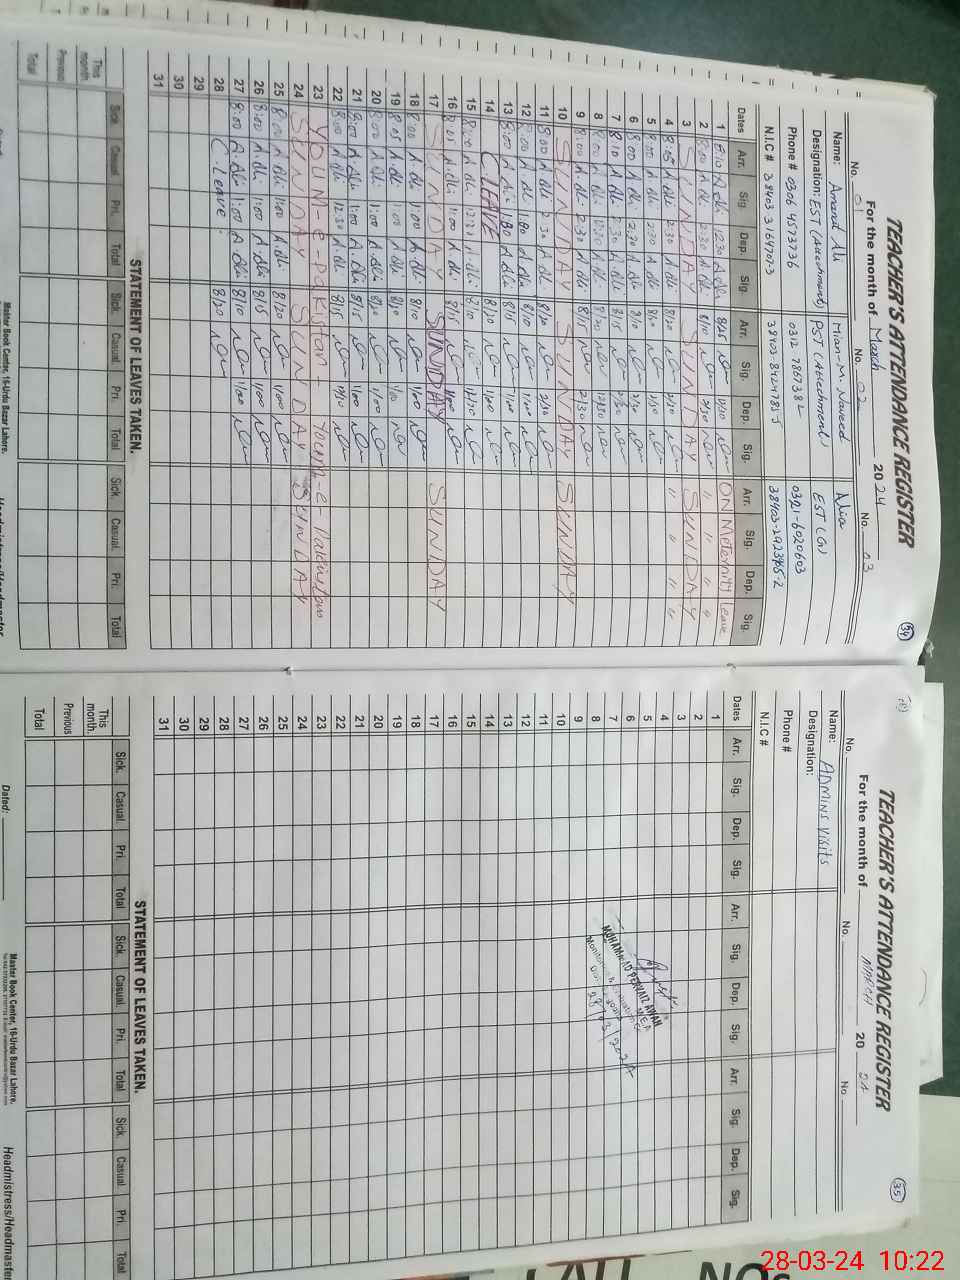 TEACHER'S ATTENDANCE REGISTER
34
For the month of March 2024
No. 01 No. 02 No. 03
Name: Amand Ali Mian M. Naveed Nia
Designation: EST (Attachment) PST (Attachment) EST (G)
Phone # 0306 4573736 0312 7867382 0321-6020603
N.I.C # 38403 3164707-3 38403-8424785-5 38403-292385-2
Dates Arr. Sig Dep. Sig. Arr. Sig. Dep. Sig. Arr. Sig. Dep. Sig.
1 8:10 A.Ali 12:30 A.Ali 8/25 12/30 ON Meternity leave
2 8:00 A.Ali 2:30 A.Ali 8/10 2/30 " " " "
3 SUNDAY SUNDAY SUNDAY
4 8:05 A.Ali 2:30 A.Ali 8/20 2/30 " "
5 8:00 A.Ali 2:30 A.Ali 8/20 2/30
6 8:00 A.Ali 2:30 A.Ali 8/10 2/30
7 8:10 A.Ali 2:30 A.Ali 8/15 2/30
8 8:00 A.Ali 12:30 A.Ali 8/20 12/30
9 8:00 A.Ali 2:30 A.Ali 8/15 2/30
10 SUNDAY SUNDAY SUNDAY
11 8:00 A.Ali 2:30 A.Ali 8/20 2/30
12 8:00 A.Ali 1:00 A.Ali 8/10 1/00
13 8:00 A.Ali 1:00 A.Ali 8/15 1/00
14 C. LEAVE 8/20 1/00
15 8:00 A.Ali 12:30 A.Ali 8/10 12/30
16 8:05 A.Ali 1:00 A.Ali 8/15 1/00
17 SUNDAY SUNDAY SUNDAY
18 8:00 A.Ali 1:00 A.Ali 8/10 1/00
19 8:05 A.Ali 1:00 A.Ali 8/10 1/00
20 8:00 A.Ali 1:00 A.Ali 8/20 1/00
21 8:00 A.Ali 1:00 A.Ali 8/15 1/00
22 8:00 A.Ali 12:30 A.Ali 8/15 12/30
23 YOUM-e-Pakistan - Youm-e-Pakistan
24 SUNDAY SUNDAY SUNDAY
25 8:00 A.Ali 1:00 A.Ali 8/20 1/00
26 8:00 A.Ali 1:00 A.Ali 8/15 1/00
27 8:00 A.Ali 1:00 A.Ali 8/10 1/00
28 C. Leave 8/20
29
30
31
STATEMENT OF LEAVES TAKEN.
Sick. Casual Pri. Total Sick. Casual. Pri. Total Sick. Casual. Pri. Total
This month
Previous
Total
Master Book Center, 16-Urdu Bazar Lahore.
TEACHER'S ATTENDANCE REGISTER
35
For the month of MARCH 20 24
No. No. No
Name: ADMINS Visits
Designation:
Phone #
N.I.C #
Dates Arr. Sig. Dep. Sig. Arr. Sig. Dep. Sig. Arr. Sig. Dep. Sig.
1
2
3
4
5
6
7
8
9
10
11
12
13
14
15
16
17
18
19
20
21
22
23
24
25
26
27
28
29
30
31
MUHAMMAD PERVAIZ AWAN
M.E.A
28/03/2024
STATEMENT OF LEAVES TAKEN.
Sick. Casual Pri. Total Sick Casual. Pri. Total Sick. Casual. Pri. Total
This month.
Previous
Total
Master Book Center, 16-Urdu Bazar Lahore.
Dated:
Headmistress/Headmaster
28-03-24 10:22